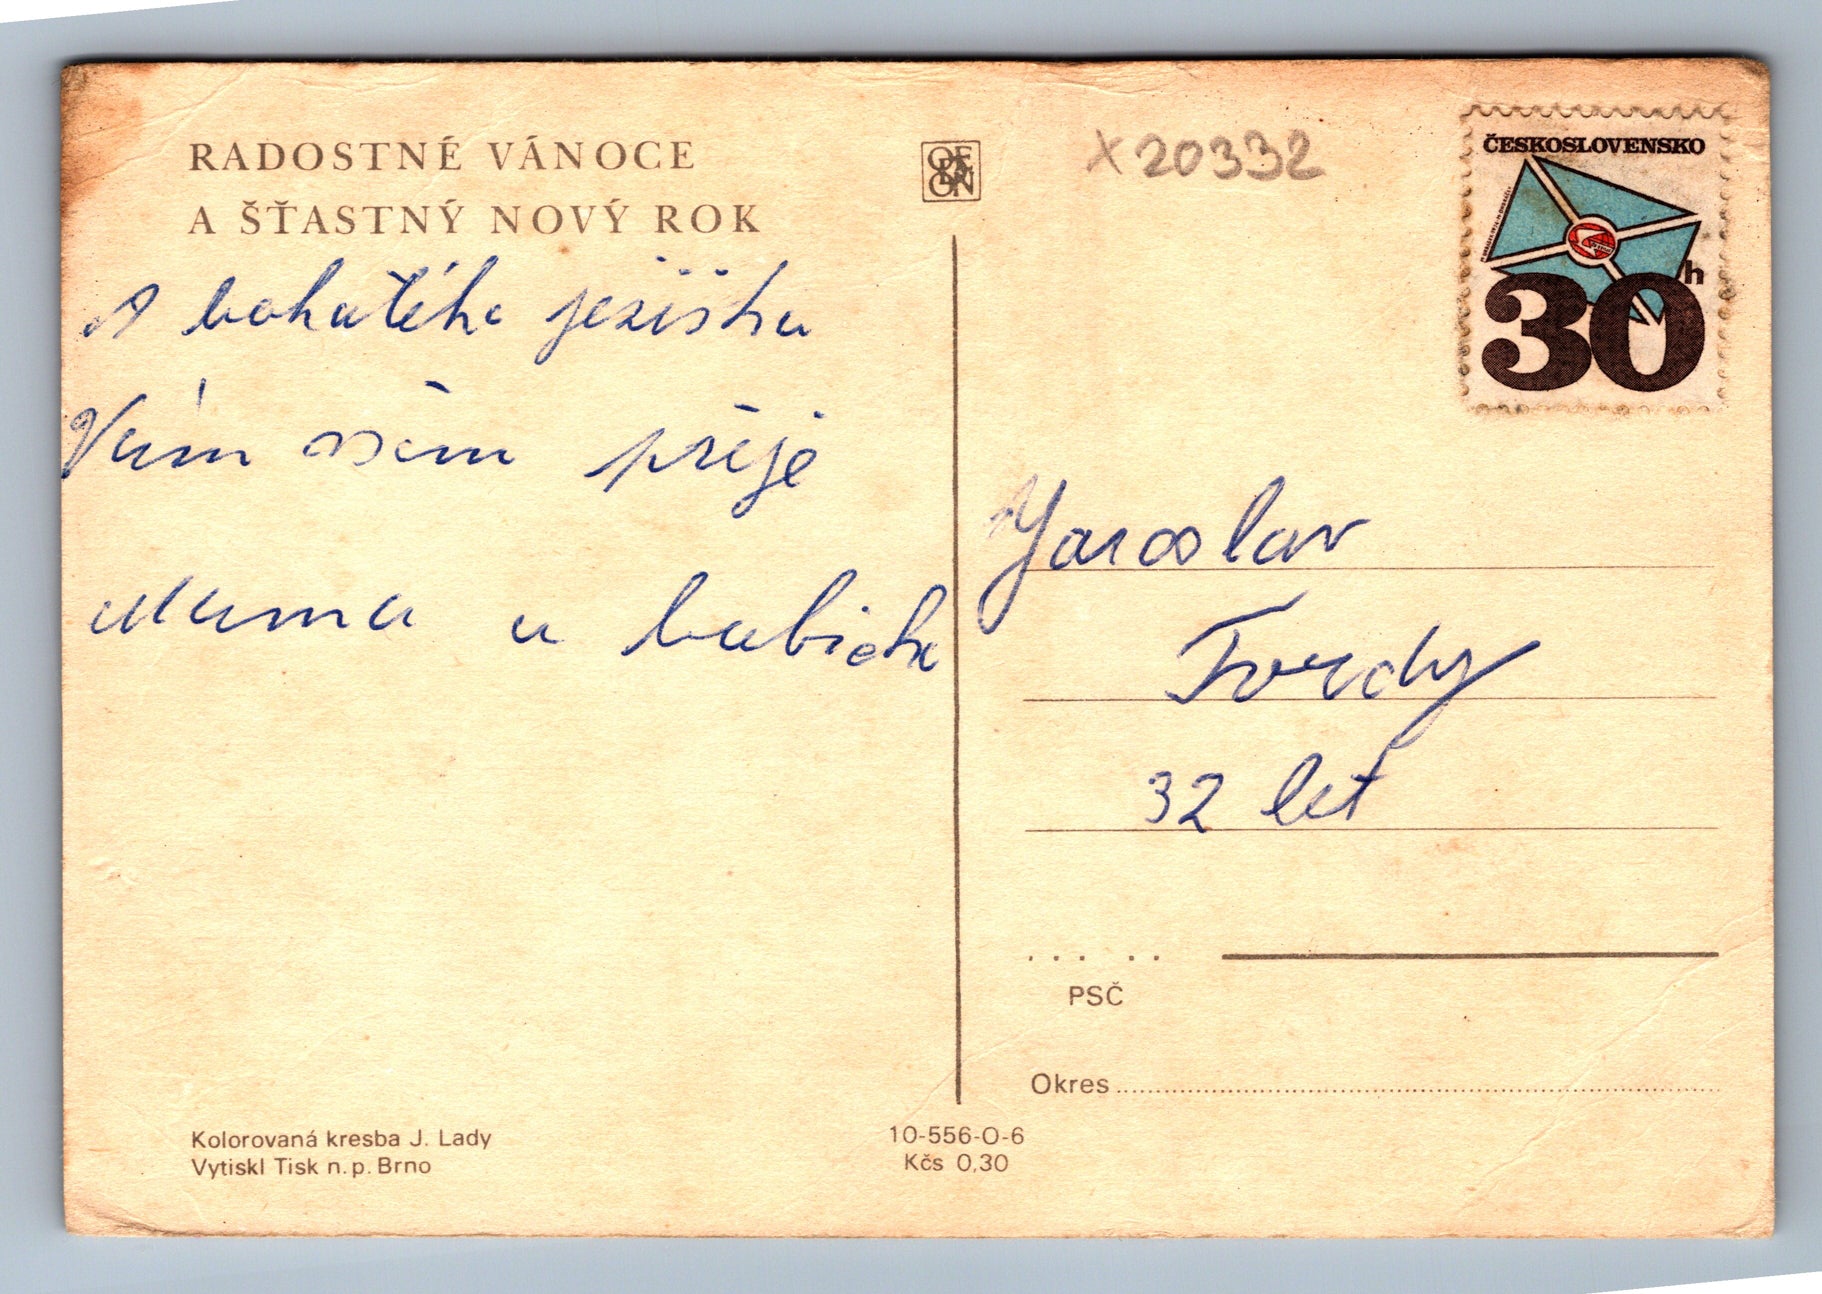 RADOSTNÉ VÁNOCE
A ŠŤASTNÝ NOVÝ ROK
A bohatého ježíška
Vám všem přeje
Mama a babička
ODEON
X20332
ČESKOSLOVENSKO
30h
Jaroslav
Tvrdy
32 let
PSČ
Okres
Kolorovaná kresba J. Lady
Vytiskl Tisk n.p. Brno
10-556-O-6
Kčs 0,30